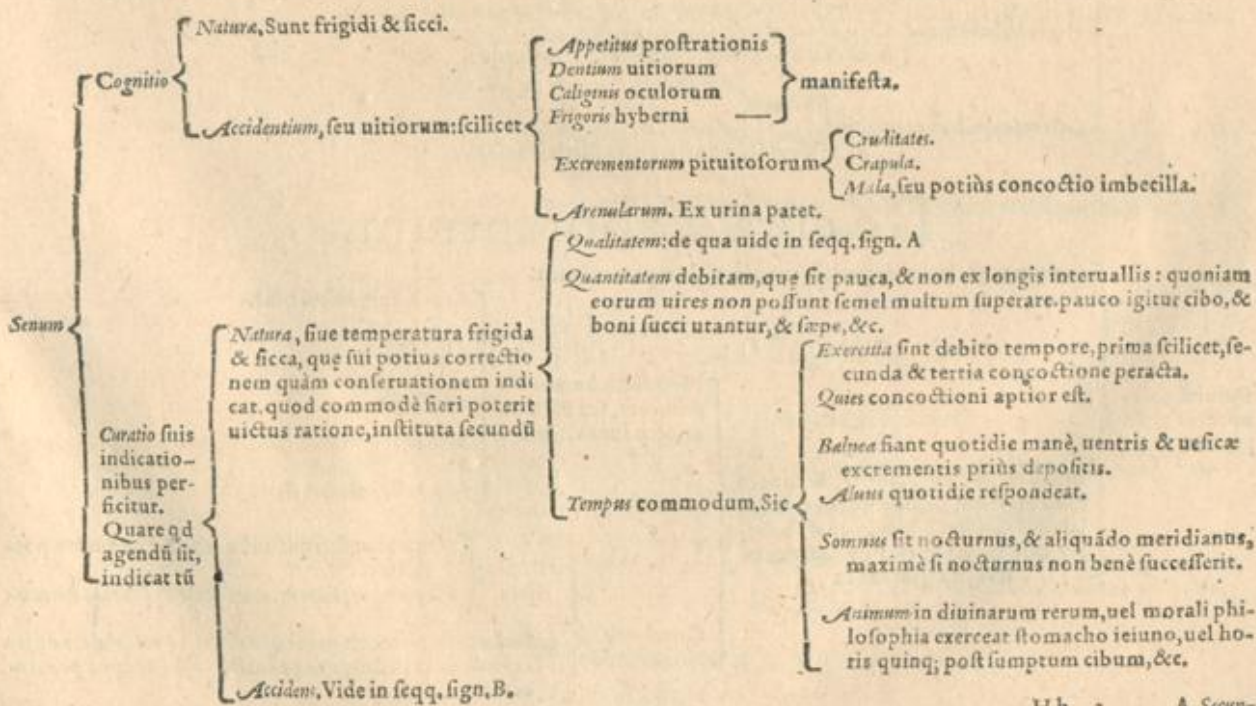 Naturæ, Sunt frigidi & sicci.
Cognitio
Accidentium, seu uitiorum: scilicet
Appetitus prostrationis
Dentium uitiorum
Caliginis oculorum
Frigoris hyberni
manifesta.
Excrementorum pituitosorum
Cruditates.
Crapula.
Mala, seu potiùs concoctio imbecilla.
Arenularum. Ex urina patet.
Senum
Curatio suis
indicatio-
nibus per-
ficitur.
Quare qd
agendū sit,
indicat tū
Natura, siue temperatura frigida
& sicca, quę sui potius correctio
nem quàm conseruationem indi
cat. quod commodè fieri poterit
uictus ratione, instituta secundū
Qualitatem: de qua uide in seqq. sign. A
Quantitatem debitam, quę sit pauca, & non ex longis interuallis: quoniam
eorum uires non possunt semel multum superare. pauco igitur cibo, &
boni succi utantur, & sæpe, &c.
Tempus commodum. Sic
Exercitia sint debito tempore, prima scilicet, se-
cunda & tertia concoctione peracta.
Quies concoctioni aptior est.
Balnea fiant quotidie manè, uentris & uesicæ
excrementis priùs depositis.
Aluus quotidie respondeat.
Somnus sit nocturnus, & aliquādo meridianus,
maximè si nocturnus non benè successerit.
Animum in diuinarum rerum, uel morali phi-
losophia exerceat stomacho ieiuno, uel ho-
ris quinq; post sumptum cibum, &c.
Accidens, Vide in seqq, sign, B.
A Secun-